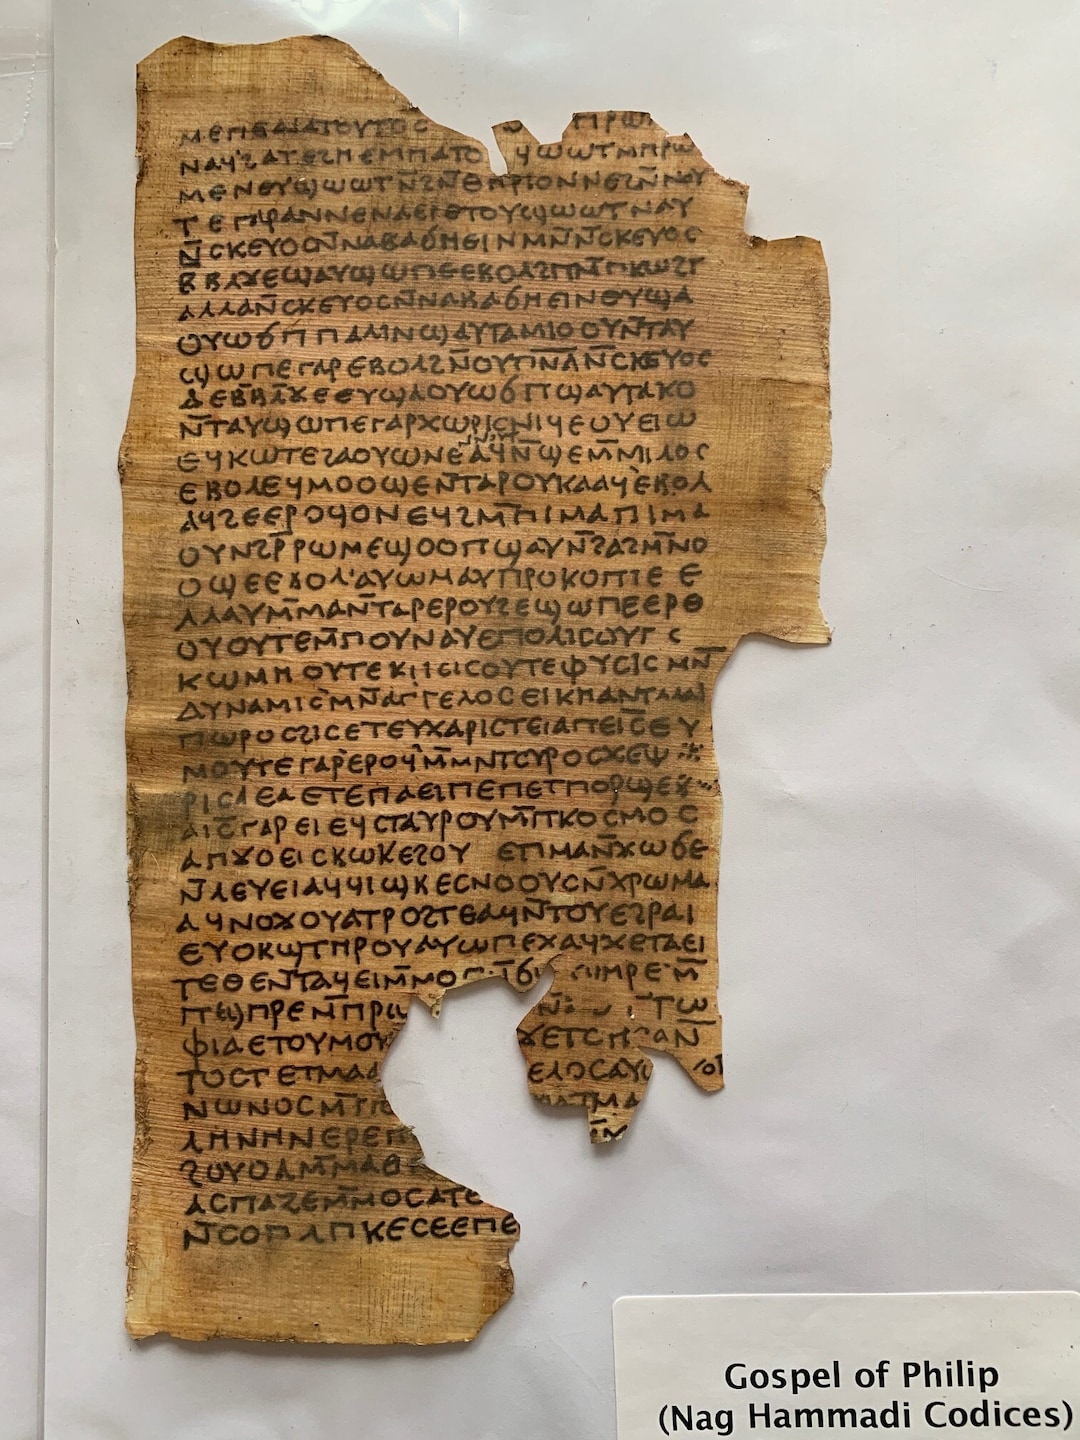 ⲙⲉⲡⲉⲇⲓⲁⲧⲟⲩⲧⲟⲥ ⲡⲣⲱ
ⲛⲁϥϩⲁⲧⲉϩⲏⲉⲙⲡⲁⲧⲟ ϥϣⲱⲱⲧⲙⲡⲣⲱ
ⲙⲉⲛⲉⲩϣⲱⲱⲧⲛ̄ϩⲛ̄ⲑⲏⲣⲓⲟⲛⲛⲉϩⲛ̄ⲛⲟⲩ
ⲧⲉⲅⲁⲣⲁⲛⲛⲉⲛⲁⲉⲓⲉⲧⲟⲩϣⲱⲱⲧⲛⲁⲩ
ⲛ̄ⲥⲕⲉⲩⲟⲥⲛ̄ⲛⲁⲃⲁϭⲏⲉⲓⲛⲙⲛ̄ⲛ̄ⲥⲕⲉⲩⲟⲥ
ⲃⲃⲗϫⲉϣⲁⲩϣⲱⲡⲉⲉⲃⲟⲗϩⲓⲧⲛ̄ⲡⲕⲱϩⲧ
ⲁⲗⲗⲁⲛ̄ⲥⲕⲉⲩⲟⲥⲛ̄ⲛⲁⲃⲁϭⲏⲉⲓⲛⲉⲩϣⲁ
ⲟⲩⲱϭⲡⲡⲁⲗⲓⲛϣⲁⲩⲧⲁⲙⲓⲟⲟⲩⲛ̄ⲧⲁⲩ
ϣⲱⲡⲉⲅⲁⲣⲉⲃⲟⲗϩⲛ̄ⲟⲩⲡ̄ⲛ̄ⲁ̄ⲛ̄ⲥⲕⲉⲩⲟⲥ
ⲇⲉⲃ̄ⲃⲗ̄ϫⲉⲉⲩϣⲁⲟⲩⲱϭⲡϣⲁⲩⲧⲁⲕⲟ
ⲛ̄ⲧⲁⲩϣⲱⲡⲉⲅⲁⲣⲭⲱⲣⲓⲥⲛⲓϥⲉⲟⲩⲉⲓⲱ
ⲉϥⲕⲱⲧⲉϩⲁⲟⲩⲱⲛⲉⲁϥⲛ̄ϣⲉⲙ̄ⲙⲓⲗⲟⲥ
ⲉⲃⲟⲗⲉϥⲙⲟⲟϣⲉⲛ̄ⲧⲁⲣⲟⲩⲕⲁⲁϥⲉⲃⲟⲗ
ⲁϥϩⲉⲉⲣⲟϥⲟⲛⲉϥϩⲙ̄ⲡⲓⲙⲁⲡⲓⲙⲁ
ⲟⲩⲛϩⲣ̄ⲣⲱⲙⲉϣⲟⲟⲡϣⲁⲩⲛ̄ϩⲁϩⲙ̄ⲙⲟ
ⲟϣⲉⲉⲃⲟⲗ'ⲁⲩⲱⲙⲁⲩⲡⲣⲟⲕⲟⲡⲧⲉⲉ
ⲗⲁⲁⲩⲙ̄ⲙⲁⲛ̄ⲧⲁⲣⲉⲣⲟⲩϩⲉϣⲱⲡⲉⲉⲣⲟ
ⲟⲩⲟⲩⲧⲉⲙ̄ⲡⲟⲩⲛⲁⲩⲉⲡⲟⲗⲓⲥⲟⲩⲧⲉ
ⲕⲱⲙⲏⲟⲩⲧⲉⲕⲧⲓⲥⲓⲥⲟⲩⲧⲉⲫⲩⲥⲓⲥⲙⲛ̄
ⲇⲩⲛⲁⲙⲓⲥⲙⲛ̄ⲁⲅⲅⲉⲗⲟⲥⲉⲓⲕⲏⲁⲛⲧⲁⲗⲁⲓ
ⲡⲱⲣⲟⲥϩⲓⲥⲉⲧⲉⲩⲭⲁⲣⲓⲥⲧⲉⲓⲁⲡⲉⲓ̄ⲥ̄ⲉⲩ
ⲙⲟⲩⲧⲉⲅⲁⲣⲉⲣⲟϥⲙ̄ⲙⲛⲧⲥⲩⲣⲟⲥϫⲉⲫ
ⲣⲓⲥⲁⲑⲁⲉⲧⲉⲡⲁⲉⲓⲡⲉⲡⲉⲧⲡⲟⲣϣⲉⲃ
ⲁⲓ̄ⲥ̄ⲅⲁⲣⲉⲓⲉϥⲥⲧⲁⲩⲣⲟⲩⲙ̄ⲡⲕⲟⲥⲙⲟⲥ
ⲁⲡϫⲟⲉⲓⲥⲃⲱⲕⲉϩⲟⲩ ⲉⲡⲙⲁⲛ̄ϫⲱϭⲉ
ⲛ̄ⲗⲉⲩⲉⲓⲁϥϥⲓϣⲃⲉⲥⲛⲟⲟⲩⲥⲛ̄ⲭⲣⲱⲙⲁ
ⲁϥⲛⲟϫⲟⲩⲁⲧⲣⲟϩⲧⲉⲁϥⲛ̄ⲧⲟⲩⲉϩⲣⲁⲓ
ⲉⲩⲟⲃϣⲧⲏⲣⲟⲩⲁⲩⲱⲡⲉϫⲁϥϫⲉⲧⲁⲉⲓ
ⲧⲉⲑⲉⲛ̄ⲧⲁϥⲉⲓⲙ̄ⲙⲟⲥ ϭⲓ ⲡϣⲏⲣⲉⲙ̄
ⲡϣⲏⲣⲉⲙ̄ⲡⲣⲱ ⲧⲥⲱ
ⲫⲓⲁⲉⲧⲟⲩⲙⲟⲩ ϫⲉⲧⲥⲧ ⲁⲛ̄
ⲧⲟⲥⲧⲉⲧⲙⲁⲁ ⲉⲗⲟⲥⲁⲩ
ⲛⲱⲛⲟⲥⲙ̄ⲡⲥ ⲙⲁ
ⲗⲏⲛⲏⲛⲉⲣⲉⲡ
ϩⲟⲩⲟⲁⲙ̄ⲙⲁⲑ
ⲁⲥⲡⲁⲍⲉⲙ̄ⲙⲟⲥⲁⲧⲉ
ⲛ̄ⲥⲟⲡⲁⲡⲕⲉⲥⲉⲉⲡⲉ
Gospel of Philip
(Nag Hammadi Codices)